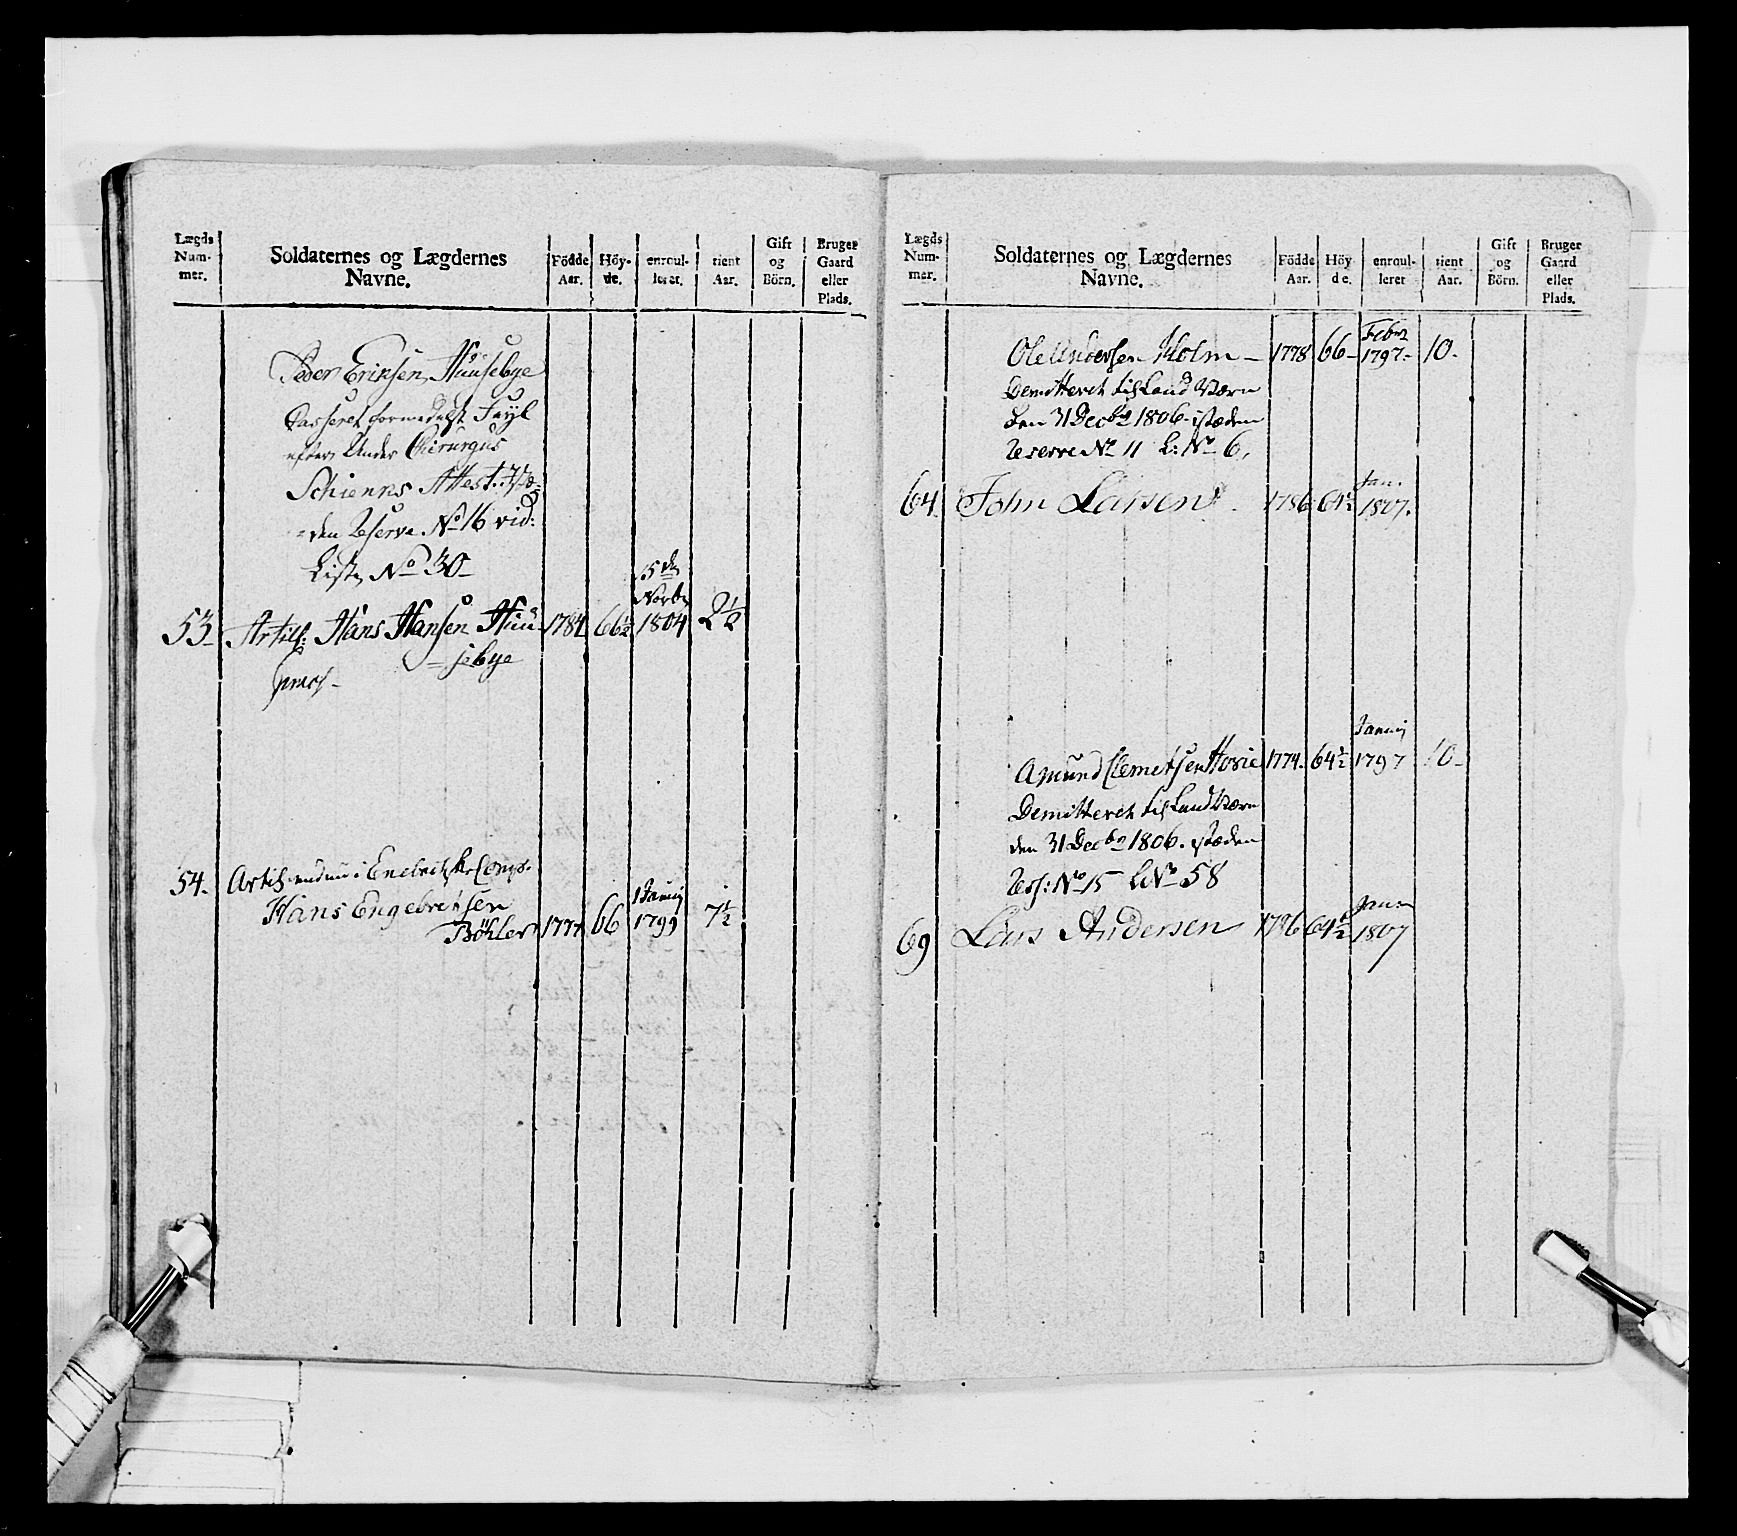 Lægds Num- mer.
Soldaternes og Lægdernes Navne.
Födde Aar.
Höy- de.
enroul- leret.
tient Aar.
Gift og Börn.
Bruger Gaard eller Plads.
Peder Eriksen Huusebye
Casseret formedelst Feyl
efter Under Chirurgus
Schienks Attest.
den Reserve No 16 vid:
Liste No 30
53. Artill: Hans Hansen Huu- 1784 66½ 5 d Novbr 1804 2½
=sebye
54. Artill Comp.
Hans Engebretsen
Böhler 1777 66 1 Januarij 1799 7½
Lægds Num- mer.
Soldaternes og Lægdernes Navne.
Födde Aar.
Höy de.
enroul- leret
tient Aar.
Gift og Börn.
Bruger Gaard eller Plads.
Ole Andersen Holm 1778 66 Febr 1797 10.
Demitteret til Land Værn
den 31 Decbr 1806. isteden
Reserve No 11 L: No 6,
64. John Larsen 1786 64½ Jan. 1807.
Amund Clemetsen Hovie 1774. 64½ Januarij 1797 10
Demitteret til Land Værn
den 31 Decbr 1806. isteden
Res: No 15 L No 58
69 Lars Andersen 1786 64½ Jan. 1807